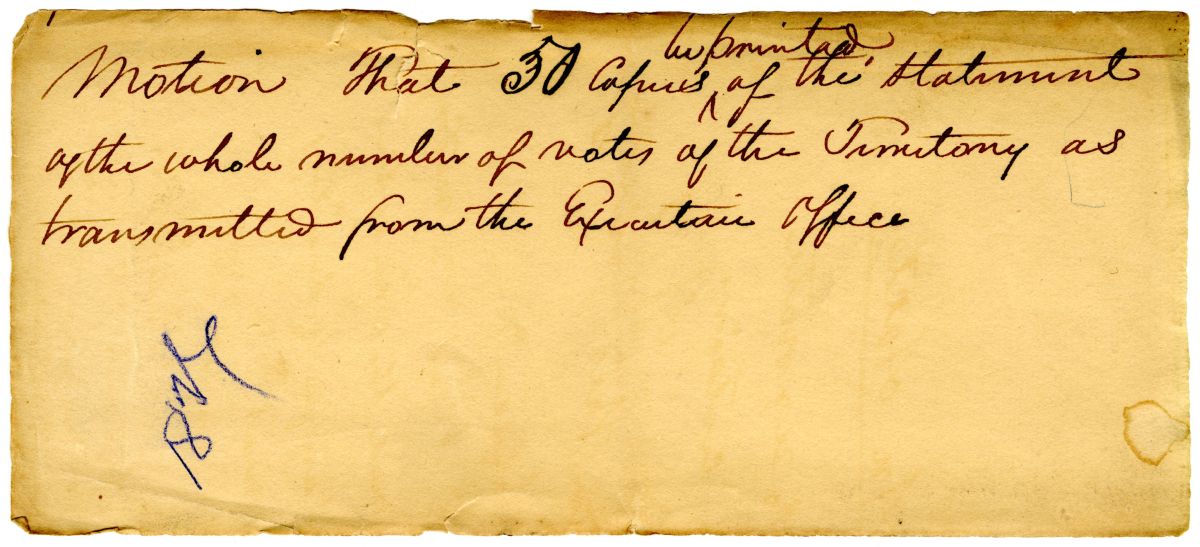 be printed
Motion That 50 Copies of the Statement
of the whole number of votes of the Territory as
transmitted from the Executive Office